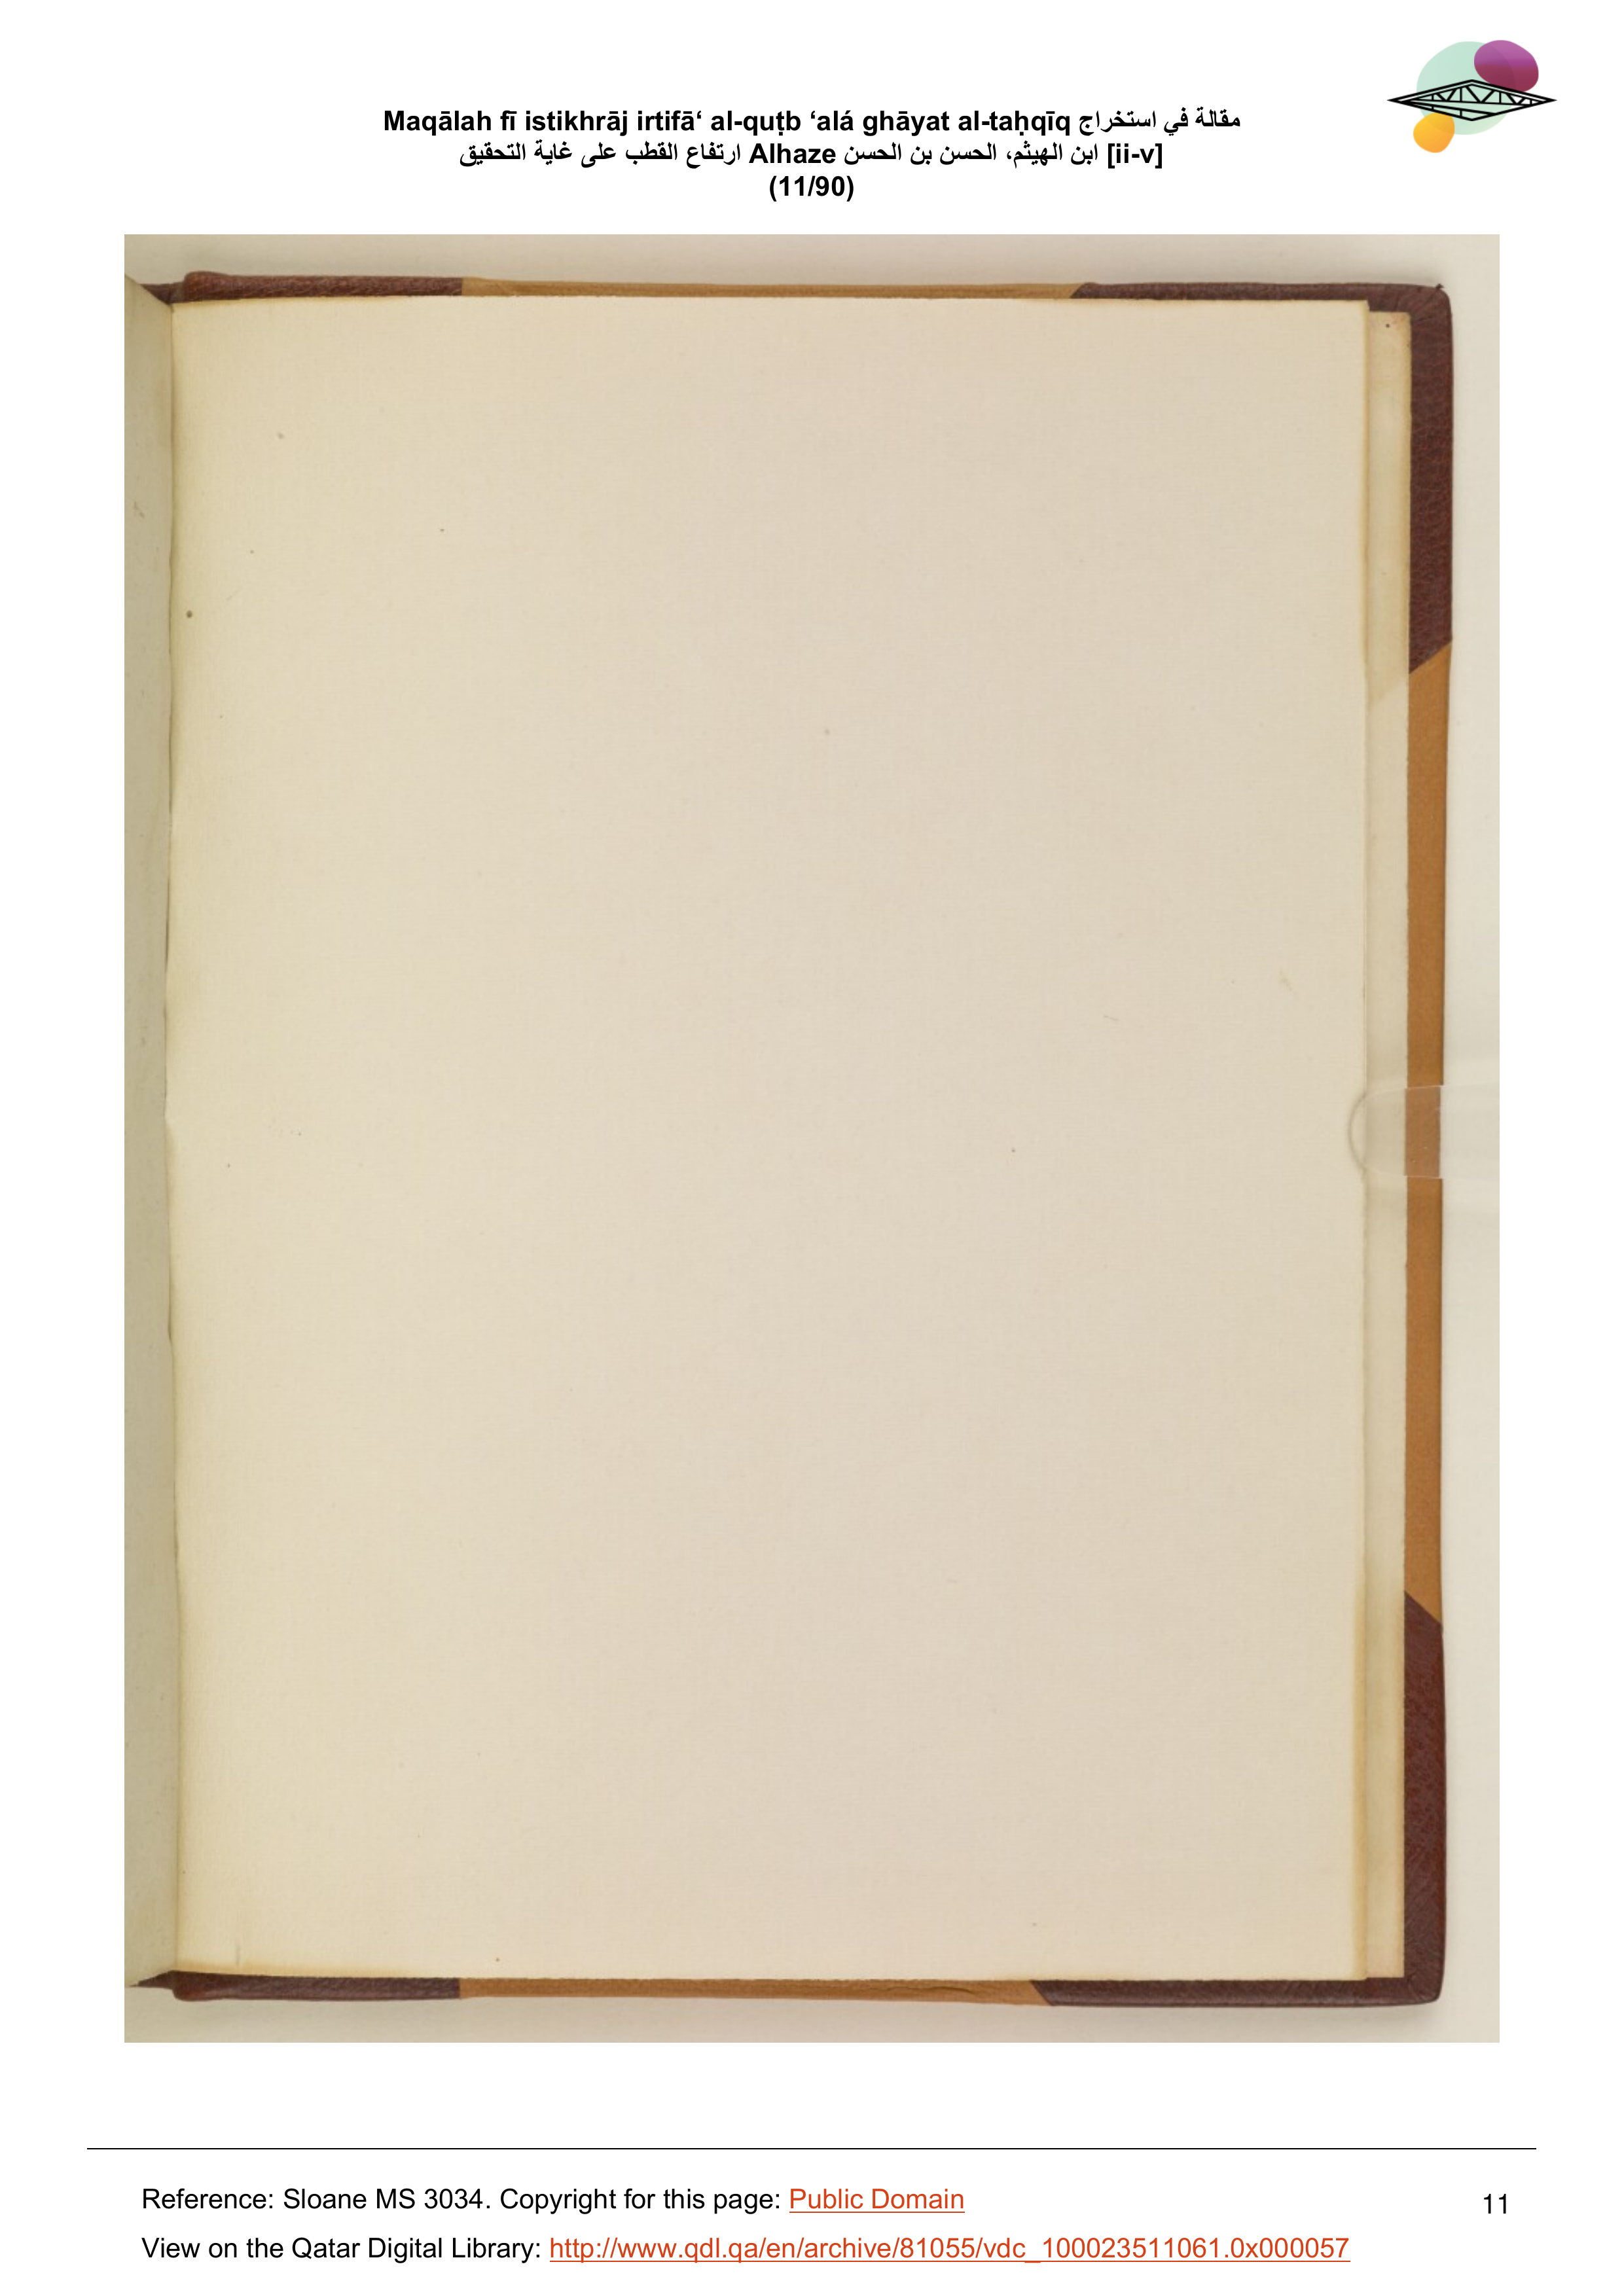 Maqālah fī istikhrāj irtifā‘ al-quṭb ‘alá ghāyat al-taḥqīq مقالة في استخراج
ارتفاع القطب على غاية التحقيق Alhaze ابن الهيثم، الحسن بن الحسن [ii-v]
(11/90)
Reference: Sloane MS 3034. Copyright for this page: Public Domain
11
View on the Qatar Digital Library: http://www.qdl.qa/en/archive/81055/vdc_100023511061.0x000057